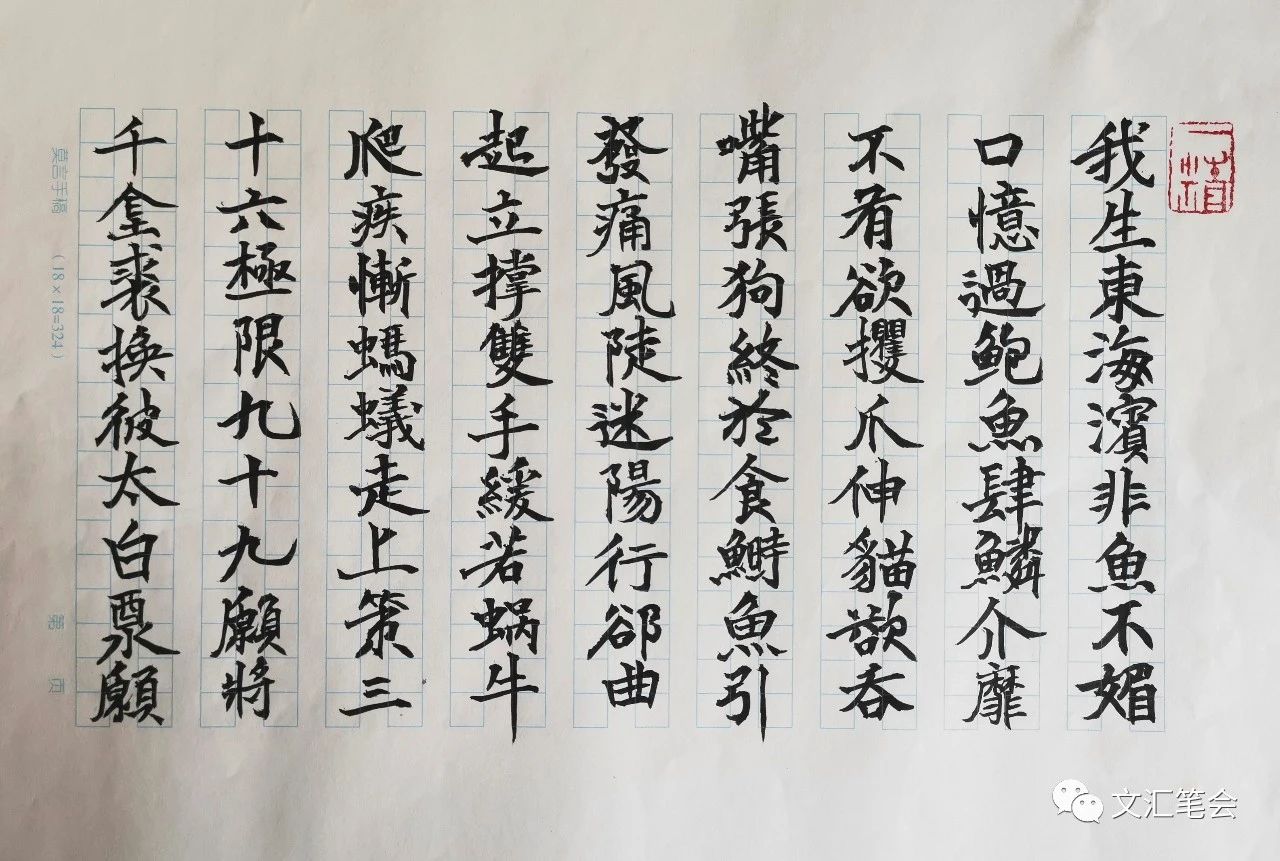 我生東海濱非魚不媚
口憶過鮑魚肆鱗介靡
不有欲攫爪伸貓欲吞
嘴張狗終於食鰣魚引
發痛風陡迷陽行郤曲
起立撑雙手緩若蝸牛
爬疾慚螞蟻走上策三
十六極限九十九願將
千金裘換彼太白票願
莫言手稿 (18×18=324) 第 页
文汇笔会